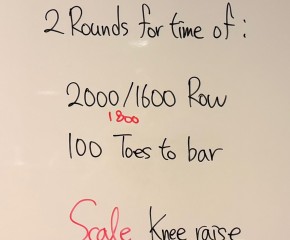 2 Rounds for time of :
2000/1600 Row
1800
100 Toes to bar
Scale Knee raise